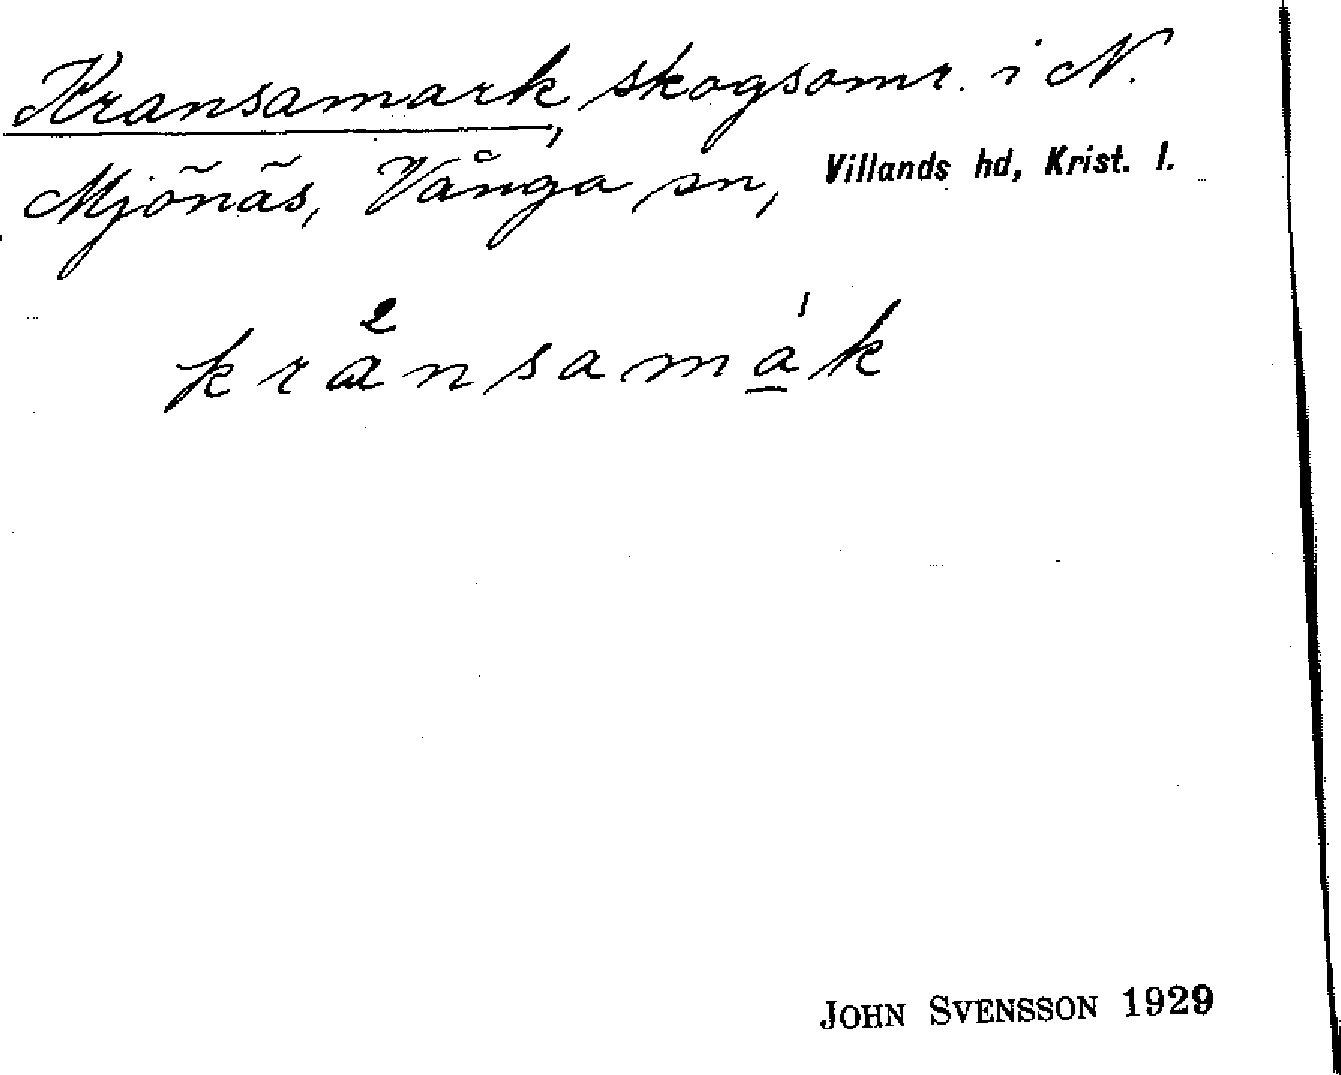 Kransamark, skogsomr. i N.
Mjönäs, Vånga sn, Villands hd, Krist. l.
kransamák
JOHN SVENSSON 1929